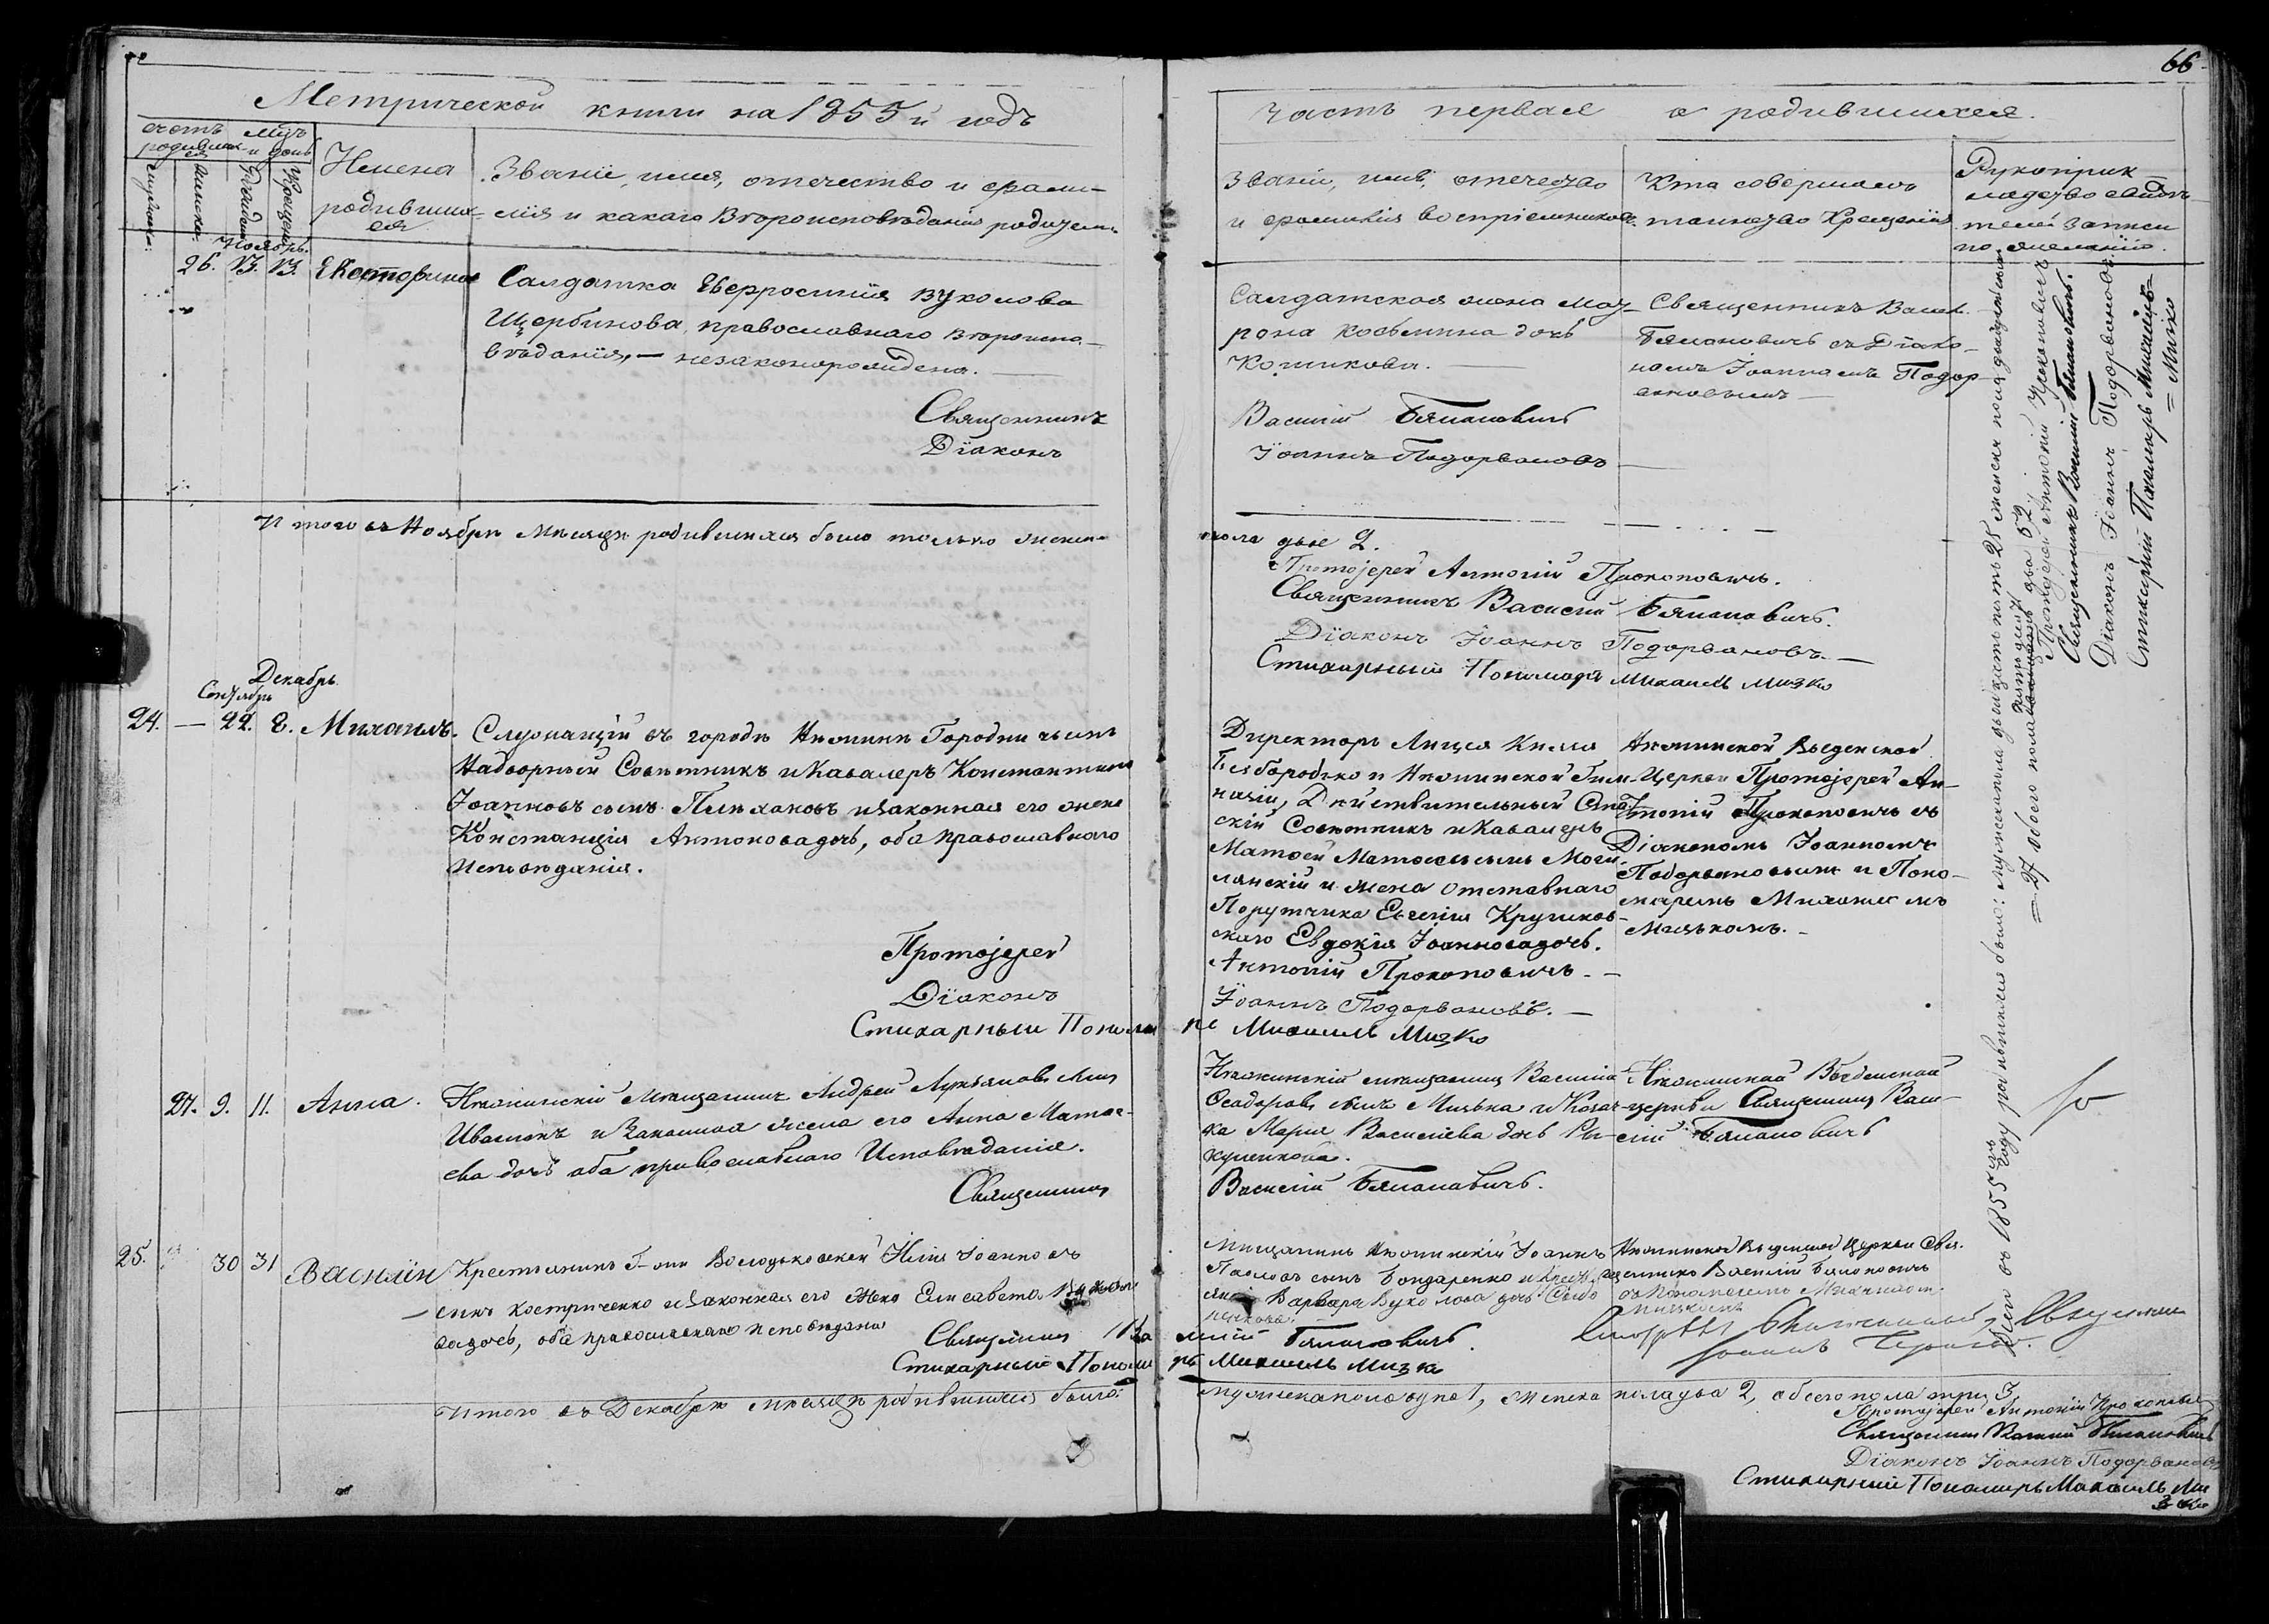 66
Метрической книги на 1855й годъ
Часть первая о родившихся.
счетъ родивших-ся
Мцъ и день
мужеска.
женска.
рожденія
крещенія
Имена
родивших-
ся
Званіе, имя, отечество и фами-
лія и какаго вѣроисповѣданія родители
Званіе, имя, отечество
и фамилія воспріемниковъ.
Кто совершалъ
таинство крещенія
Рукоприк-
ладство свидѣ-
телей записи
по желанію.
Ноябрь.
26. 13. 13. Екатерина
Салдатка Евфросинія Вуколова
Щербинова, православнаго вѣроиспо-
вѣданія, — незаконорождена.
Священникъ
Діаконъ
Салдатская жена Мат-
рона Козьмина дочь
Кошикова.
Василій Бяжановичъ
Іоаннъ Подорвановъ
Священникъ Васил.
Бяжановичъ съ Діако-
номъ Іоанномъ Подор-
вановымъ
Итого въ Ноябрѣ мѣсяцѣ родившихся было только женска
пола двѣ 2.
Протоіерей Антоній Прокоповичъ.
Священникъ Василій Бяжановичъ.
Діаконъ Іоаннъ Подорвановъ. —
Стихарный Пономарь Михаилъ Мизко
Декабрь
Сентябрь
24. — 22. 8. Михаилъ.
Служащій въ городѣ Нѣжинѣ Городничимъ
Надворный Совѣтникъ и Кавалеръ Константинъ
Іоанновъ сынъ Плѣхановъ и законная его жена
Констанція Антонова дочь, оба православнаго
исповѣданія.
Протоіерей
Діаконъ
Стихарный Понома
Директоръ Лицея Князя
Безбородько и Нѣжинской Гим-
назіи, Дѣйствительный Стат-
скій Совѣтникъ и Кавалеръ
Матвей Матвеевъ сынъ Моги-
лянскій и жена отставнаго
Порутчика Евгенія Круликов-
скаго Евдокія Іоаннова дочь.
Антоній Прокоповичъ. —
Іоаннъ Подорвановъ. —
рь Михаилъ Мизко
Нѣжинской Введенской
Церкви Протоіерей Ан-
тоній Прокоповичъ съ
Діакономъ Іоанномъ
Подорвановымъ и Поно-
маремъ Михаиломъ
Мизькомъ. —
27. 9. 11. Анна.
Нѣжинскій мѣщанинъ Андрей Лукьяновъ сынъ
Ивасюкъ и законная жена его Анна Матве-
ева дочь оба православнаго Исповѣданія.
Священникъ
Нѣжинскій мѣщанинъ Василій
Феодоровъ сынъ Мизька и Козач-
ка Марія Василіева дочь
Василій Бяжановичъ.
Нѣжинской Введенской
церкви Священникъ Васи-
лій Бяжановичъ
25. 30 31 Василій
Крестьянинъ Г-жи Володьковской Илія Іоанновъ
сынъ Костриченко и законная его жена Елисавета
оба православнаго исповѣданія
Священникъ Ва
Стихарный Понома
Мищанинъ Нѣжинскій Іоаннъ
Павловъ сынъ Бондаренко и крестья
Варвара Вуколова дочь
силій Бяжановичъ.
рь Михаилъ Мизко
Нѣжинской Введенской Церкви Свя-
щенникъ Василій Бяжановичъ
съ Пономаремъ Михаиломъ
Мизькомъ
Итого въ Декабрѣ мѣсяцѣ родившихся было:
мужеска пола одно 1, женска пола два 2, обоего пола три 3.
Протоіерей Антоній Прокопович
Священникъ Василій Бяжановичъ
Діаконъ Іоаннъ Подорвановъ
Стихарный Пономарь Михаилъ Ми
зко
въ 1855мъ году родившихся было: мужеска пола двадцать пять 25 женска пола двадцать семь
= 27 обоего пола пятьдесятъ два 52
Протоіерей Антоній Прокоповичъ
Священникъ Василій Бяжановичъ.
Діаконъ Іоаннъ Подорвановъ.
Стихарный Пономарь Михаилъ =
= Мизко